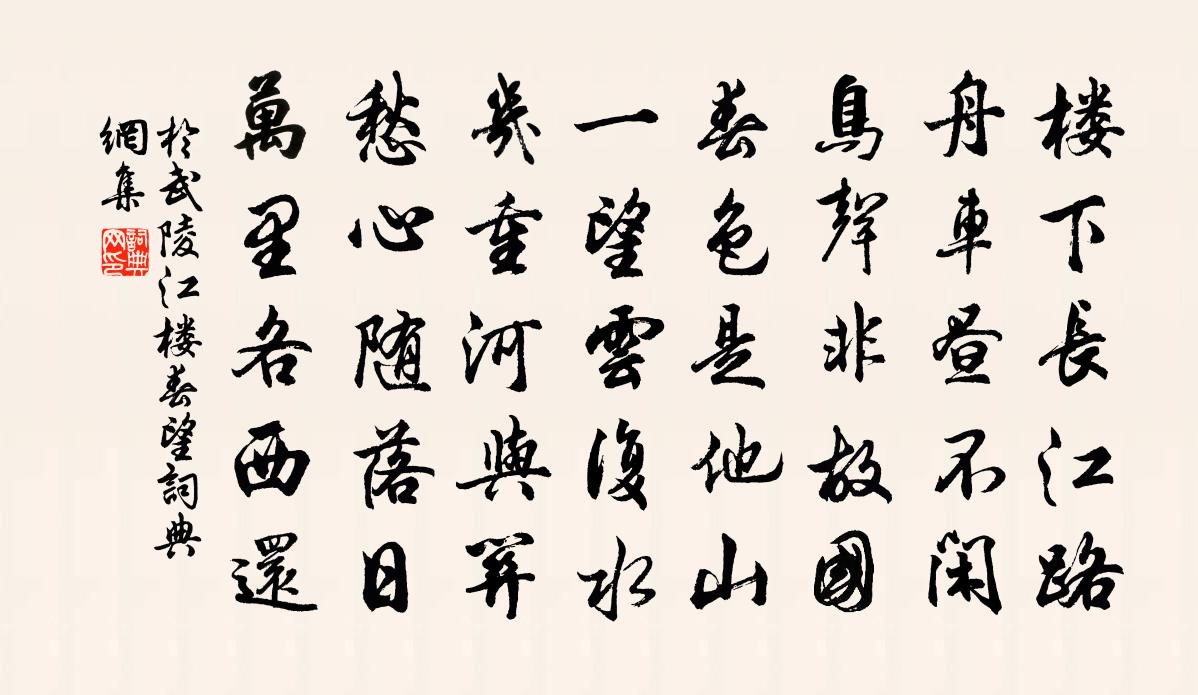 楼下長江路
舟車昼不閑
鳥聲非故國
春色是他山
一望雲復水
幾重河與關
愁心随落日
萬里各西還
於武陵江楼春望詞典
網集
詞典网印